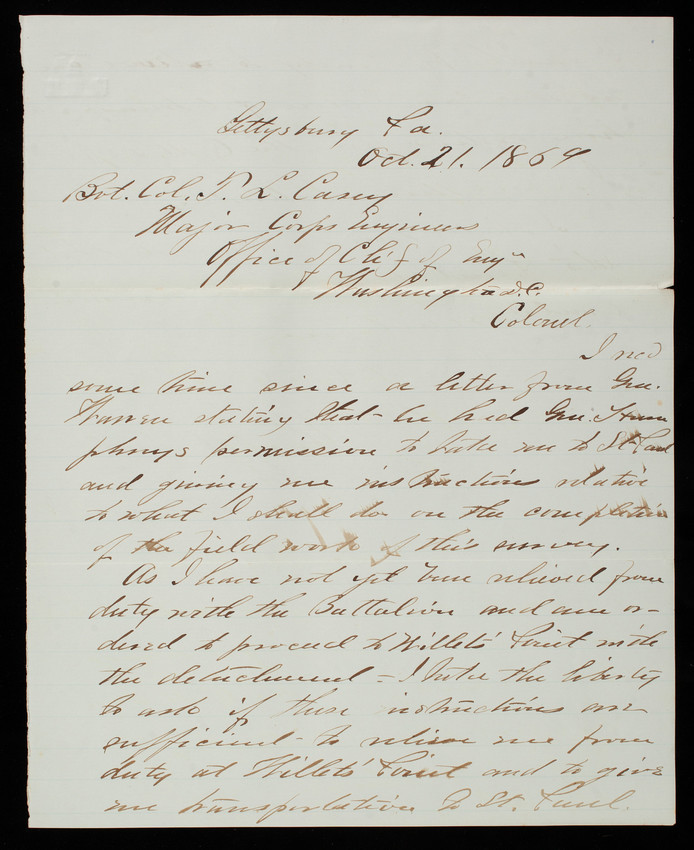 Gettysburg Pa.
Oct. 21. 1869
Bvt. Col. T. L. Casey
Major Corps Engineers
Office of Chief of Engrs
Washington D.C.
Colonel.
I recd
some time since a letter from Gen.
Warren stating that he had Gen. Hum
phreys permission to take me to St. Paul
and giving me instructions relative
to what I shall do on the completion
of the field work of this survey.
As I have not yet been relieved from
duty with the Battalion and am or-
dered to proceed to Willets' Point with
the detachment - I take the liberty
to ask if these instructions are
sufficient to relieve me from
duty at Willets' Point and to give
me transportation to St. Paul.